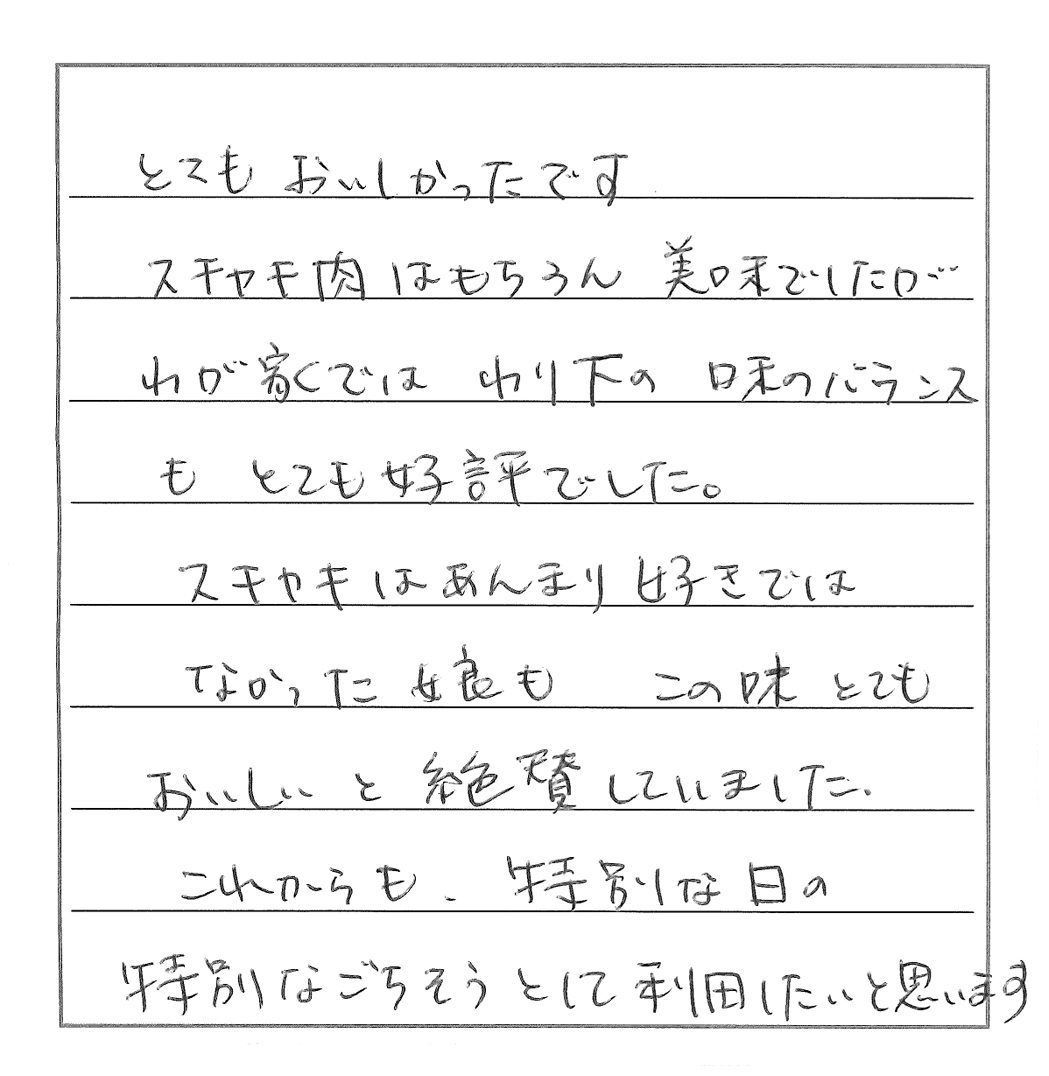 とても おいしかったです
スキヤキ肉はもちろん 美味でしたが
わが家では わり下の 味のバランス
も とても好評でした。
スキヤキはあんまり好きでは
なかった娘も この味 とても
おいしい と 絶賛していました.
これからも、特別な日の
特別なごちそうとして利用したいと思います